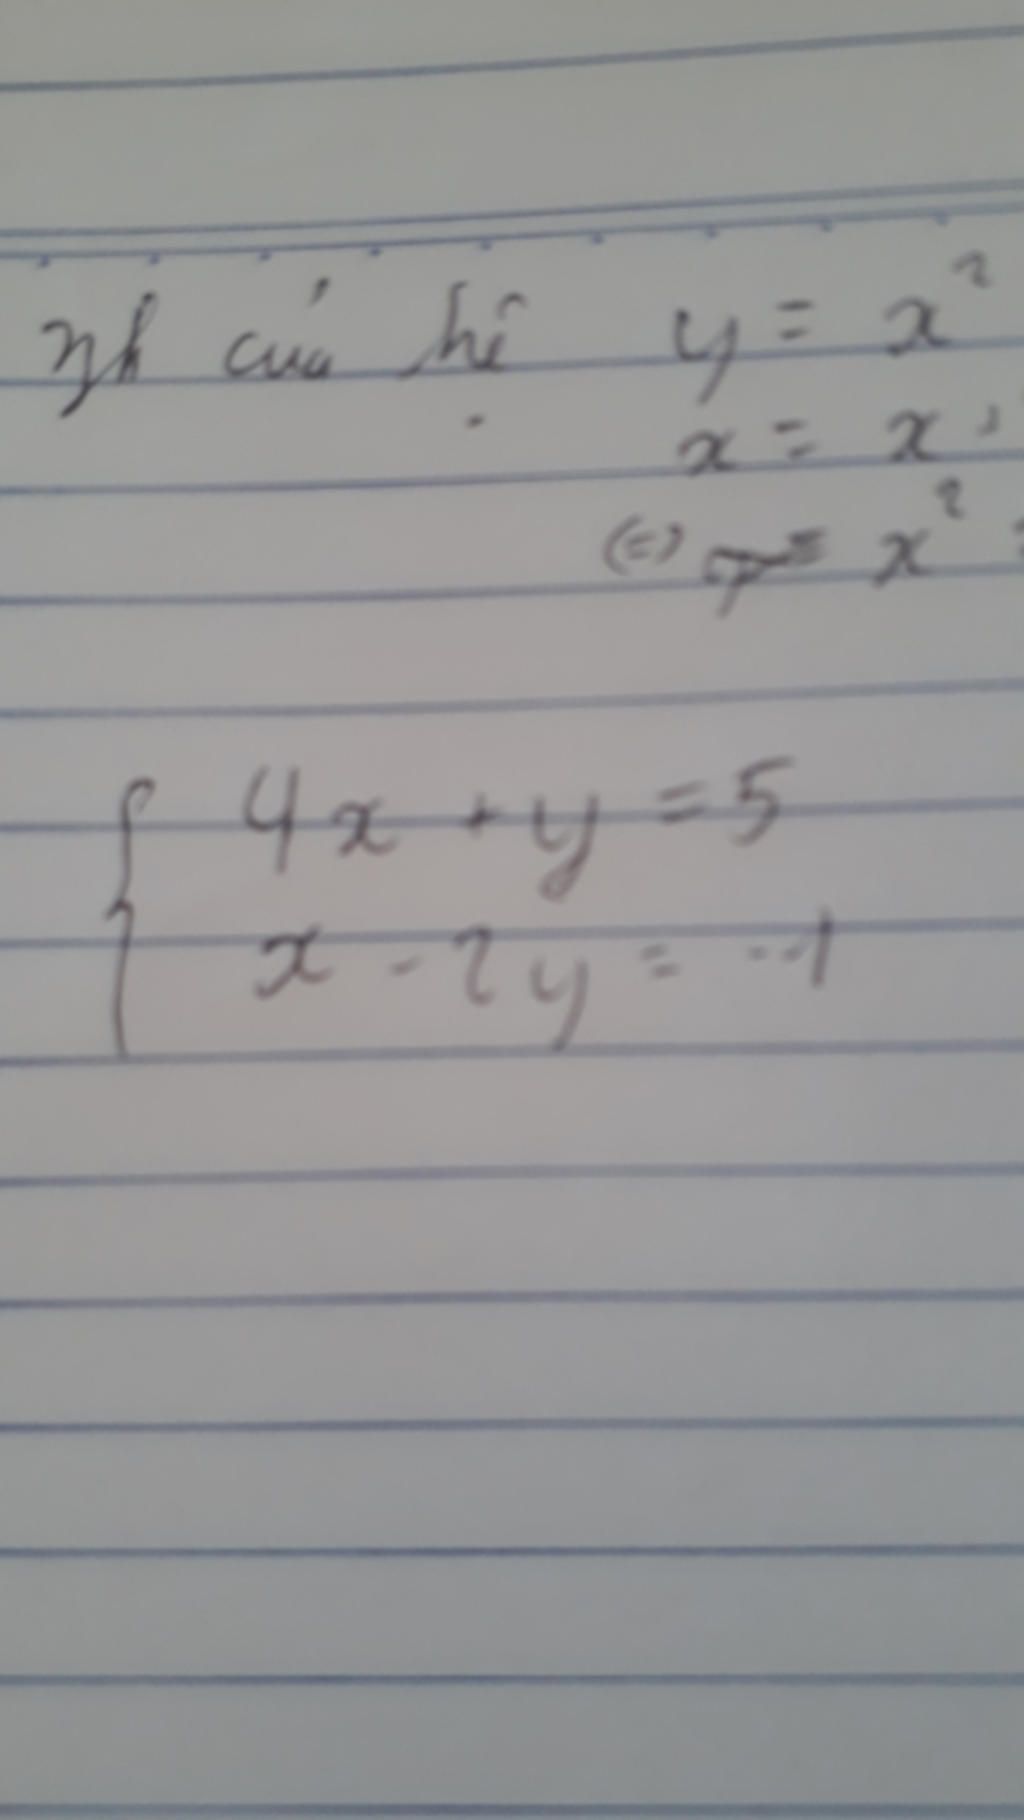 của hệ y = x²
x = x
(=) = x²
4x + y = 5
x - 2y = -1